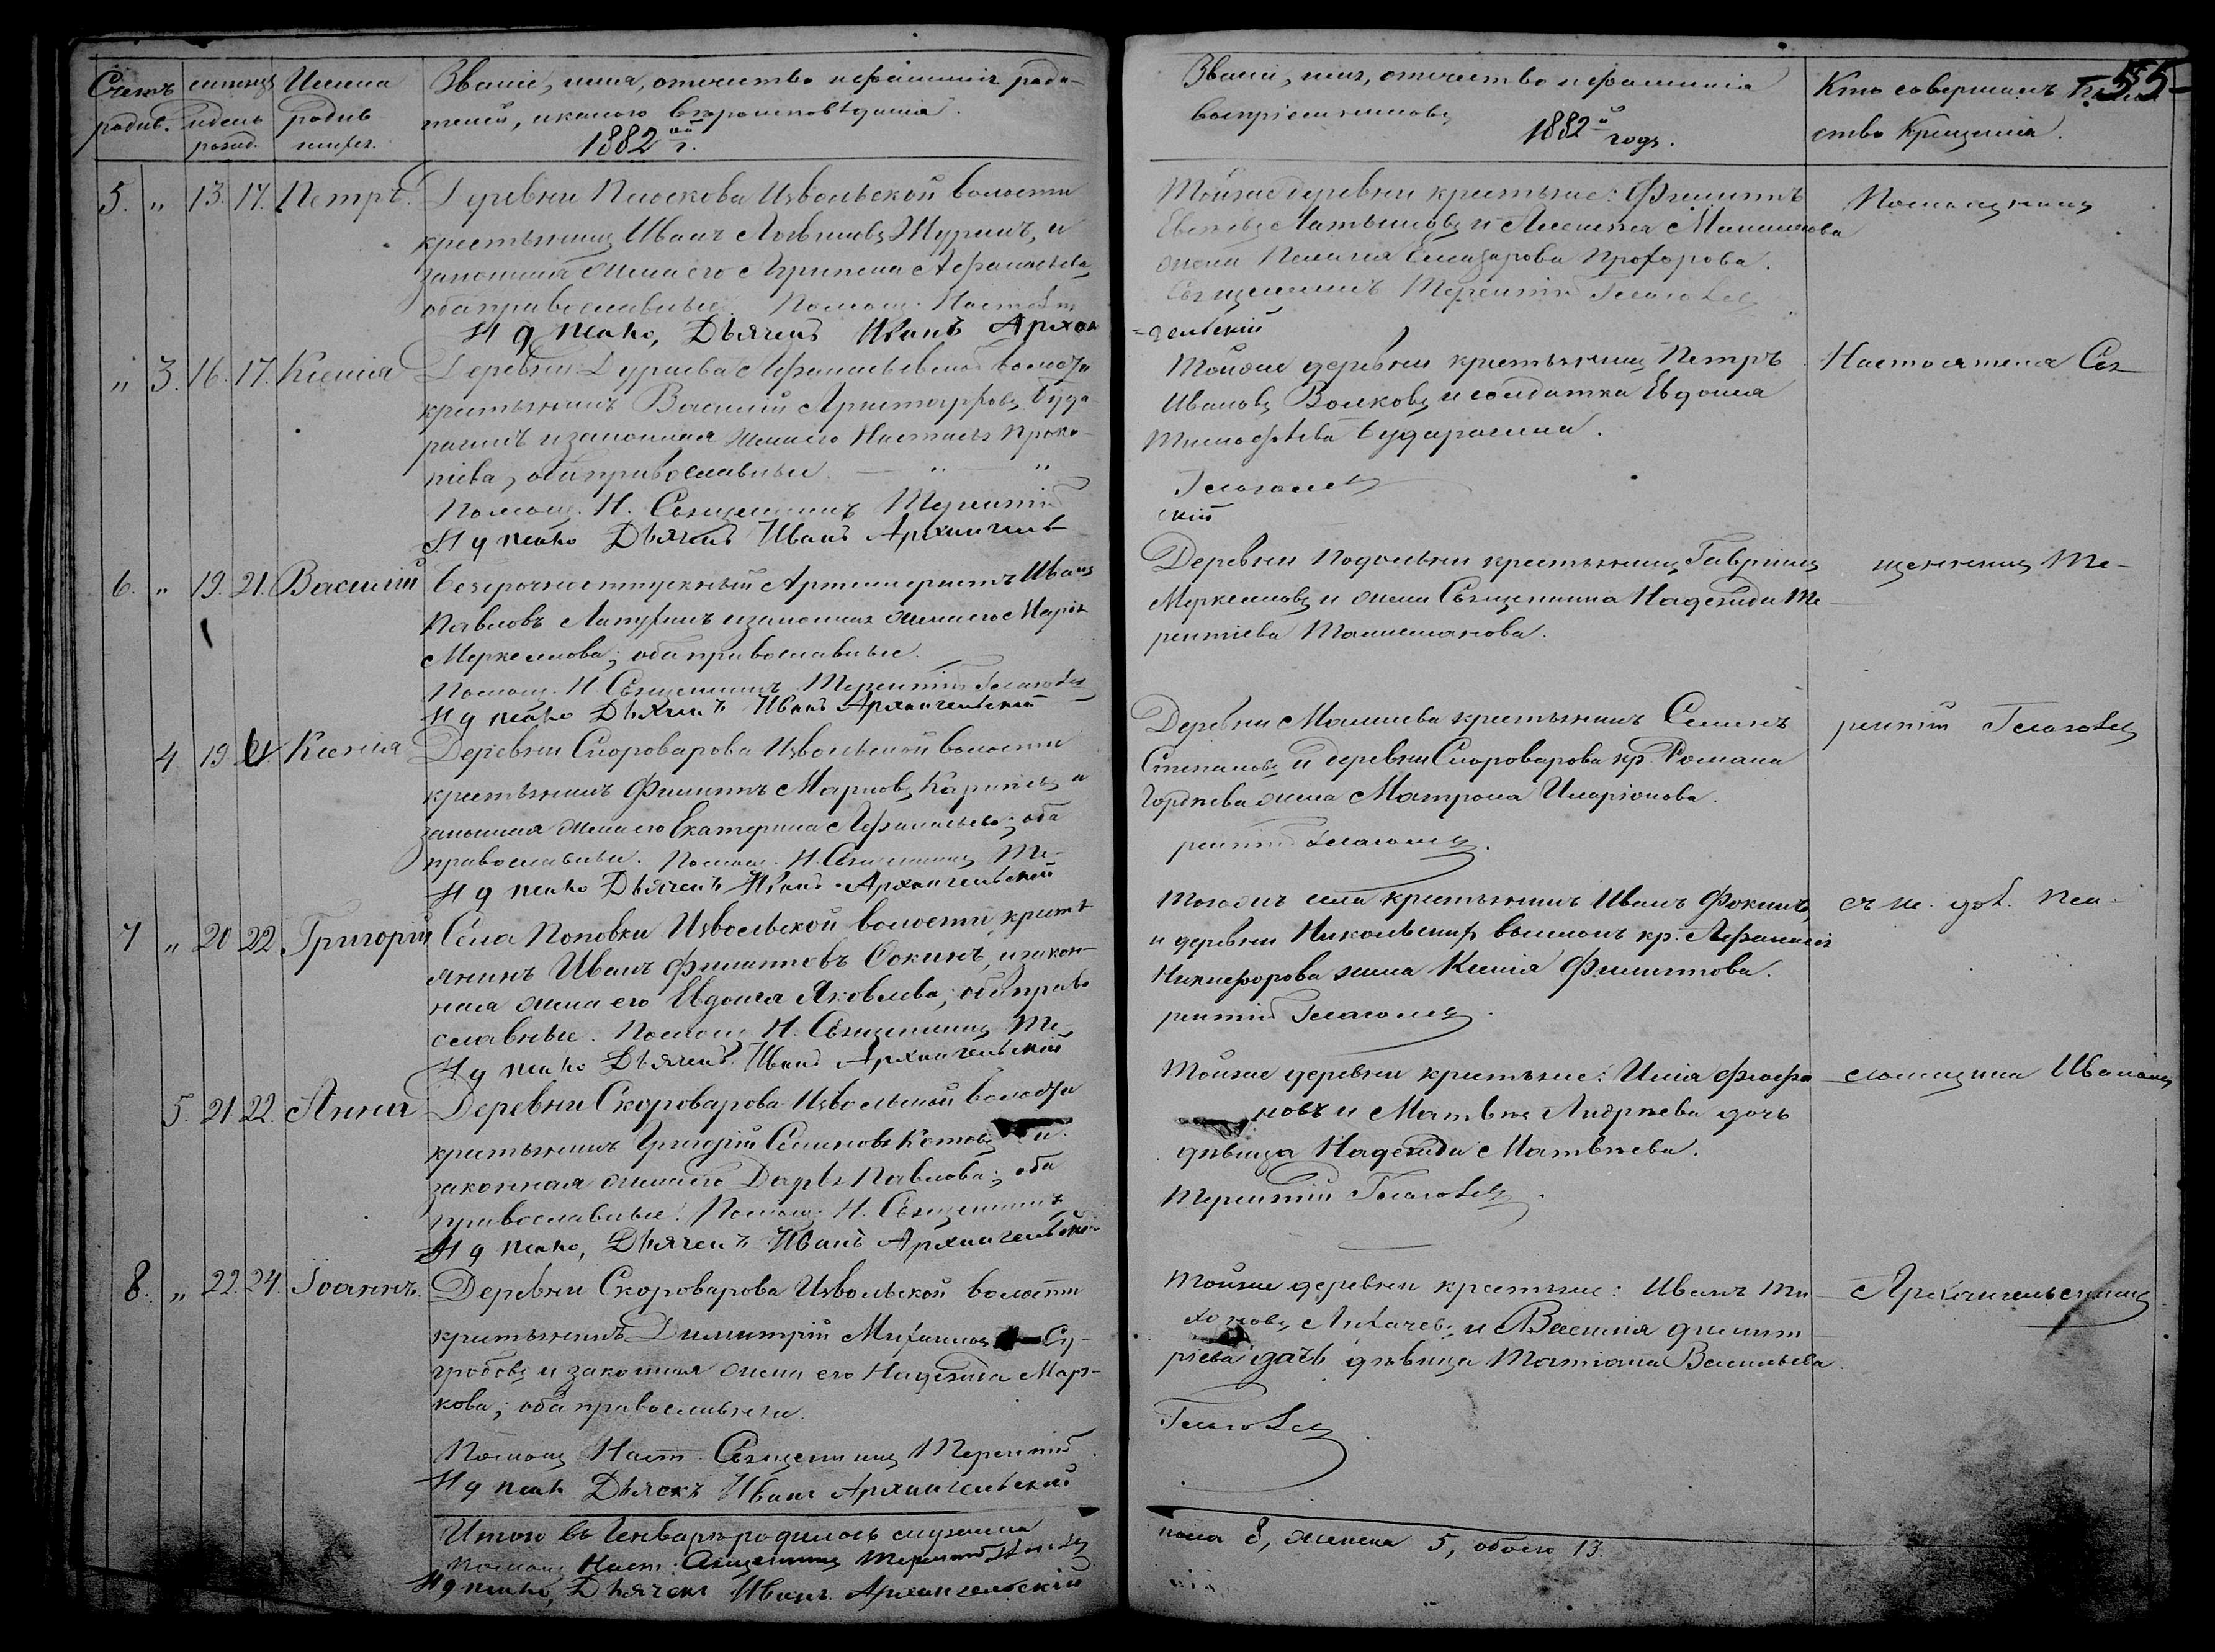 Счетъ родив.
мѣсяцъ и день рожд.
Имена родив
шихся.
Званіе, имя, отчество и фамилія роди-
телей, и какого вѣроисповѣданія.
1882 г.
5. " 13. 17. Петръ.
Деревни Плоскова Извольской волости
крестьянинъ Иванъ Логвиновъ Журинъ, и
законная жена его Агрипена Афанасьева,
оба православные. Помощ. Настоят
И д псало, Дьячекъ Иванъ Архан
" 3. 16. 17. Ксенія
Деревни Дураева Афанасьевской волости
крестьянинъ Василій Аристарховъ Буда-
рагинъ и законная жена его Настасья Проко-
піева, оба православные. — " "
Помощ. Н. Священникъ Терентій
И д псало Дьячекъ Иванъ Архангель-
6. " 19. 21. Василій
Безсрочноотпускный Артилеристъ Иванъ
Павловъ Лапухинъ и законная жена его Марія
Меркелова; оба православные.
Помощ. Н Священникъ Терентій Глаголев
И д псало Дьячекъ Иванъ Архангельскій
4 19. 21 Ксенія
Деревни Скороварова Извольской волости
крестьянинъ Филиппъ Марковъ Карпѣевъ и
законная жена его Екатерина Афанасьева; оба
православные. Помощ. Н. Священникъ Те-
И д псало Дьячекъ Иванъ Архангельскій
7 " 20 22 Григорій
Села Поповки Извольской волости, кресть
янинъ Иванъ Филипповъ Сокинъ, и закон-
ная жена его Евдокія Яковлева; оба право
славные. Помощ Н. Священникъ Те-
И д псало Дьячекъ Иванъ Архангельскій
5. 21. 22. Анна
Деревни Скороварова Извольской волости
крестьянинъ Григорій Семеновъ Котовъ и
законная жена его Дарья Павлова; оба
православные. Помощ. Н. Священникъ
И д псало, Дьячекъ Иванъ Архангельскій
8. " 22. 24. Іоаннъ.
Деревни Скороварова Извольской волости
крестьянинъ Димитрій Михаиловъ Су-
гробовъ и законная жена его Надежда Мар-
кова; оба православные.
Помощ Наст Священникъ Терентій
И д псало Дьячекъ Иванъ Архангельскій
Итого въ Генварѣ родилось мужеска
Помощ Наст. Священникъ Терентій
И д псало, Дьячекъ Иванъ Архангельскій
Званіе, имя, отчество и фамилія
воспріемниковъ
1882 годъ.
Кто совершалъ
ство Крещенія.
55
Той же деревни крестьяне: Филиппъ
и Алексѣя
жена Пелагія Елизарова Прохорова.
Священникъ Терентій Глаголев
=гельскій
Той же деревни крестьянинъ Петръ
Ивановъ Волковъ и солдатка Евдокія
Тимофѣева Бударагина.
Глаголев
скій
Деревни Подольни крестьянинъ Гавріилъ
Меркеловъ и жена Священника Надежда Те-
рентіева
Деревни Малиева крестьянинъ Семенъ
Степановъ и деревни Скороварова кр. Романа
Гордѣева жена Матрона Иларіонова.
рентій Глаголев.
Тогожъ села крестьянинъ Иванъ Фокинъ,
и деревни Никольскихъ выселокъ кр. Афанасія
Никифорова жена Ксенія Филиппова.
рентій Глаголев.
Той же деревни крестьяне: Илія Феофа-
новъ и Матвѣя Андрѣева дочь
дѣвица Надежда Матвѣева.
Терентій Глаголев.
Той же деревни крестьяне: Иванъ Ти-
хоновъ Лихачевъ и Василія Димит-
ріева дочь дѣвица Татіана Васильева.
Глаголев
пола 8, женска 5, обоего 13.
Помощникъ
Настоятеля Свя
щенникъ Те-
рентій Глаголев
съ и. дол. пса-
ломщика Иваномъ
Архангельскимъ